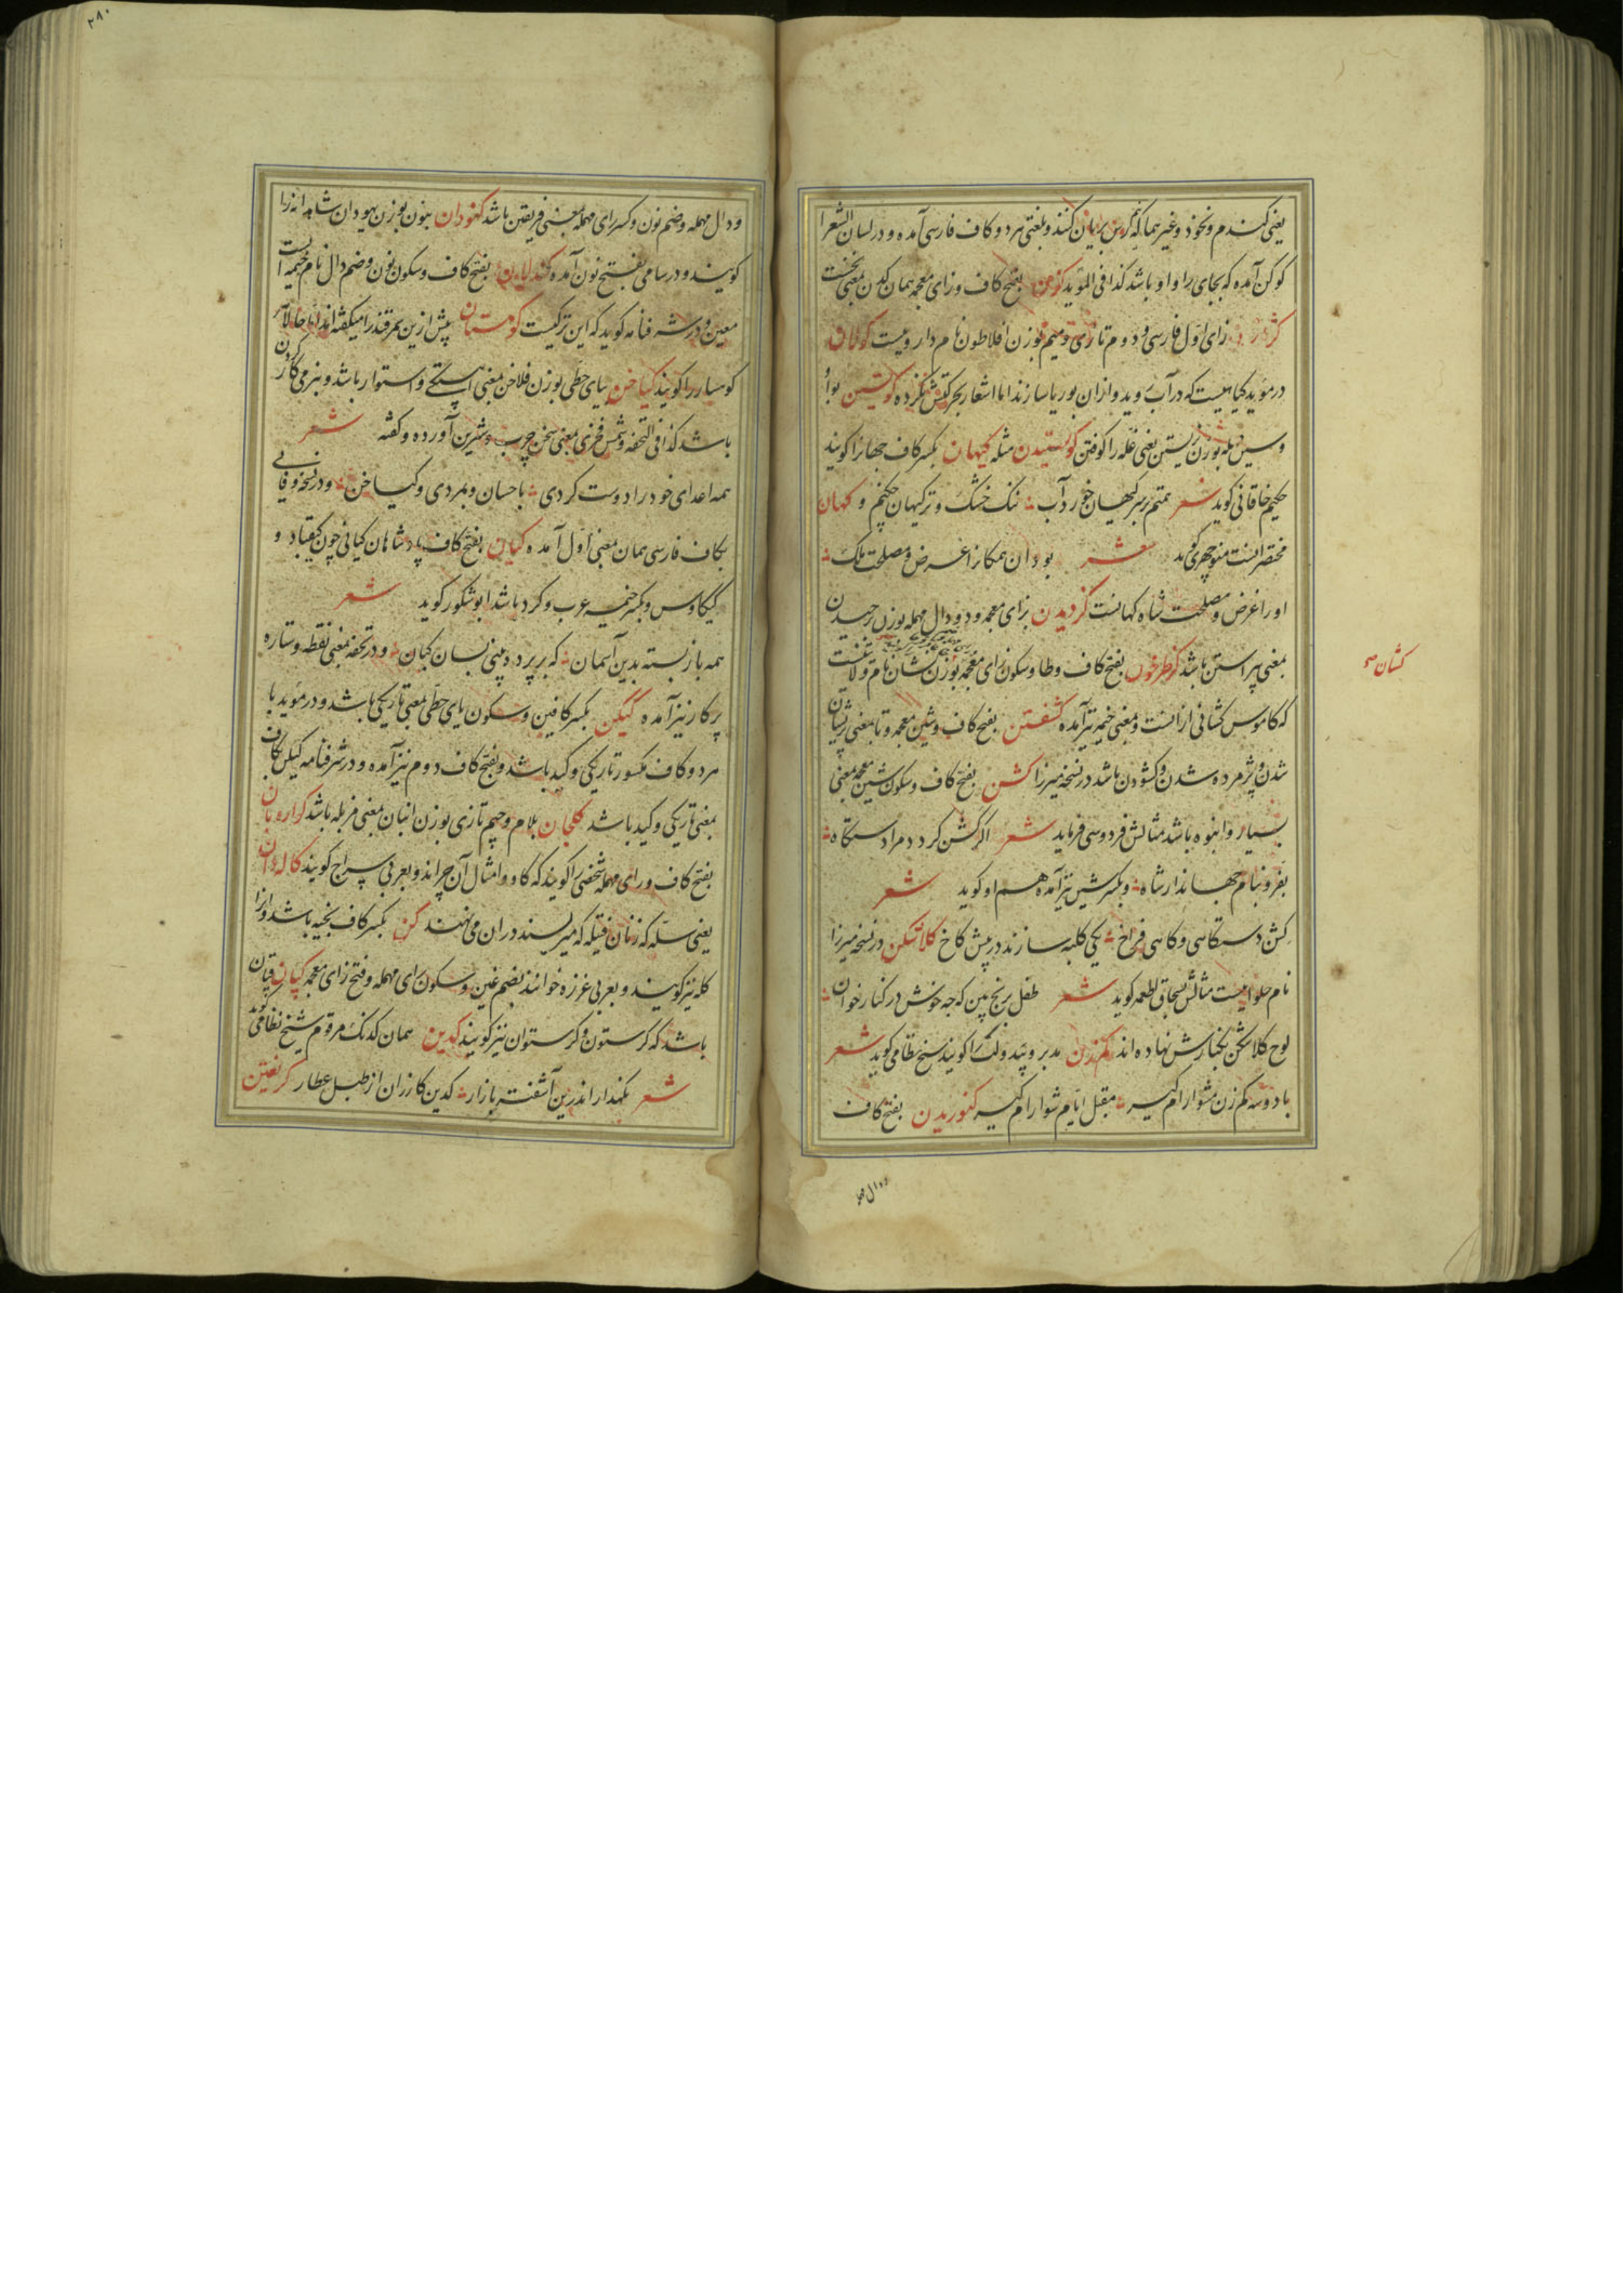 یعنی کندم و نخود و غیرهما که بریان کنند و بلغتی هر دو کاف فارسی آمده و در لسان الشعرا
کوکن آمده که بجای را واو باشد کذا فی المؤید بفتح کاف و زای معجمه همان کدن بمعنی نخست
زای اول فارسی و دوم تازی و میم بوزن افلاطون نام دارویست کولان
در موید کیاهیست که در آب روید و ازان بوریا سازند اما اشعار بحرکتش نکرده کوستن بواو
و سین مهمله بوزن زیستن یعنی غله را کوفتن کوستیدن مثله کیهان بکسر کاف جهانرا کویند
حکیم خاقانی کوید شعر همتم بر سر کیهان خورد آب نک خشک و تر کیهان چکنم و کهان
مختصر انست منوچهری کوید شعر بود آن همکانرا غرض و مصلحت ملک
او را غرض و مصلحت شاه کهانست کزدیدن بزای معجمه و دو دال مهمله بوزن رحیدن
بمعنی پیراستن باشد بفتح کاف و طا و سکون زای معجمه بوزن شان نام ولایتیست
که کاموس کشانی از انست و بمعنی خیمه نیز آمده کشفتن بفتح کاف و شین معجمه و تا بمعنی پریشان
شدن و پژمرده شدن و کشودن باشد در نسخه میرزا کشن بفتح کاف و سکون شین معجمه بمعنی
بسیار و انبوه باشد مثالش فردوسی فرماید شعر اکر کشن کردد مرا دستکاه
بفر و بنام جهاندار شاه و بکسر شین نیز آمده هم او کوید شعر
کشن دستکاهی و کاهی فراخ یکی کلبه سازند در پیش کاخ کلاتکن در نسخه میرزا
نام حلوایست مثالش بسحاق اطعمه کوید شعر طفل برنج بین که چه خوش در کنار خوان
لوح کلاتکن بکنارش نهاده اند کمزن مدبر و بی دولت را کویند شیخ نظامی کوید شعر
با دو سه کم زن مشو آرام کیر مقبل ایام شو آرام کیر کنوریدن بفتح کاف
ودال مهمله
کشان صح
۲۸۰
و دال مهمله و ضم نون و کسر رای مهمله بمعنی فریفتن باشد کنودان بنون بوزن یهودان شاهدانه را
کویند و در سامی بفتح نون آمده کندلان بفتح کاف و سکون نون و ضم دال نام خیمه ایست
معین و در شرفنامه کوید که این ترکیست کوهستان پیش ازین سمرقند را میکفته اند اما حالا
کوهسار را کویند کیاخن بیای حطی بوزن فلاخن بمعنی آهستکی و استوار باشد و بنرمی کار کردن
باشد کذا فی التحفه و شمس فخری بمعنی سخن چرب و شیرین آورده و کفته شعر
همه اعدای خود را دوست کردی باحسان و بمردی و کیاخن و در نسخه وفایی
بکاف فارسی همان معنی اول آمده کیان بفتح کاف پادشاهان کیانی چون کیقباد و
کیکاوس و بکسر خیمه عرب و کرد باشد ابو شکور کوید شعر
همه باز بسته بدین آسمان که بر پرده بینی بسان کیان و در تحفه بمعنی نقطه و ستاره
پرکار نیز آمده کیکن بکسر کافین و سکون یای حطی بمعنی تاریکی باشد و در موید با
هر دو کاف مکسور تاریکی و کید باشد و بفتح کاف دوم نیز آمده و در شرفنامه کیکن بکاف
بمعنی تاریکی و کید باشد کلجان بلام و جیم تازی بوزن انبان بمعنی مزبله باشد کواروبان
بفتح کاف و رای مهمله شخصی را کویند که کاو و امثال آن چراند و بعربی سراح کویند کاله دان
یعنی سله که زنان فتیله که میریسند دران می نهند کزن بکسر کاف بخیه باشد و انرا
کله نیز کویند و بعربی غرزه خوانند بضم غین و سکون رای مهمله و فتح زای معجمه کپان قپان
باشد که کرستون و کرستوان نیز کویند کدین همان کدنک مرقوم شیخ نظامی کوید
شعر نکهدار اندرین آشفته بازار کدین کازران از طبل عطار کربفتن